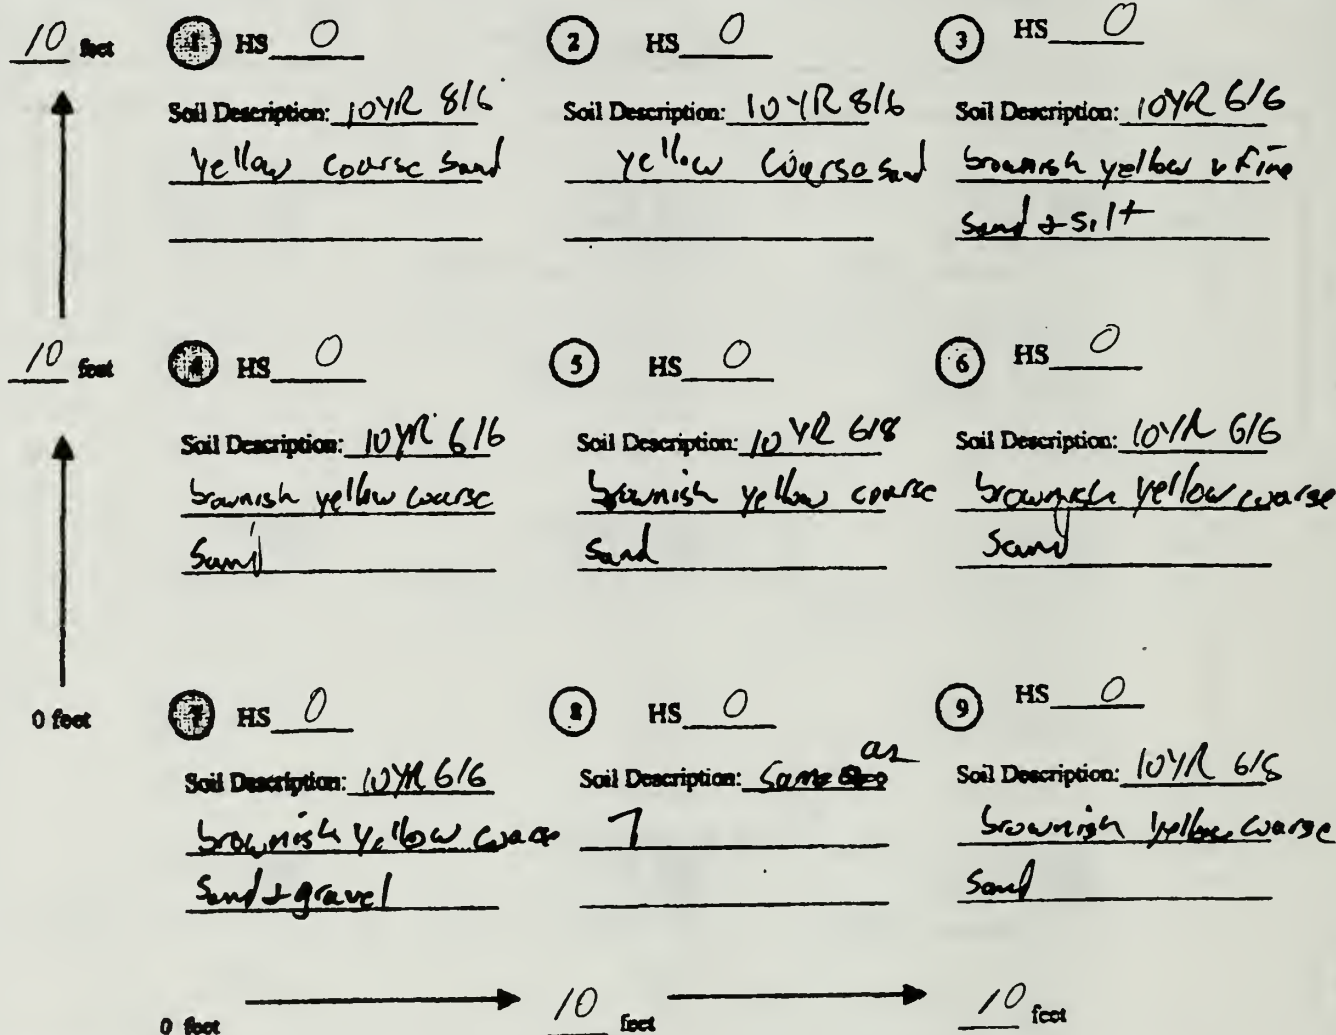 10 feet
1 HS 0
2 HS 0
3 HS 0
Soil Description: 10YR 8/6
yellow coarse sand
Soil Description: 10YR 8/6
yellow coarse sand
Soil Description: 10YR 6/6
brownish yellow v fine
sand + silt
10 feet
4 HS 0
5 HS 0
6 HS 0
Soil Description: 10YR 6/6
brownish yellow coarse
sand
Soil Description: 10YR 6/8
brownish yellow coarse
sand
Soil Description: 10YR 6/6
brownish yellow coarse
sand
0 feet
7 HS 0
8 HS 0
9 HS 0
Soil Description: 10YR 6/6
brownish yellow coarse
sand + gravel
Soil Description: same as
7
Soil Description: 10YR
brownish yellow coarse
sand
0 feet
10 feet
10 feet